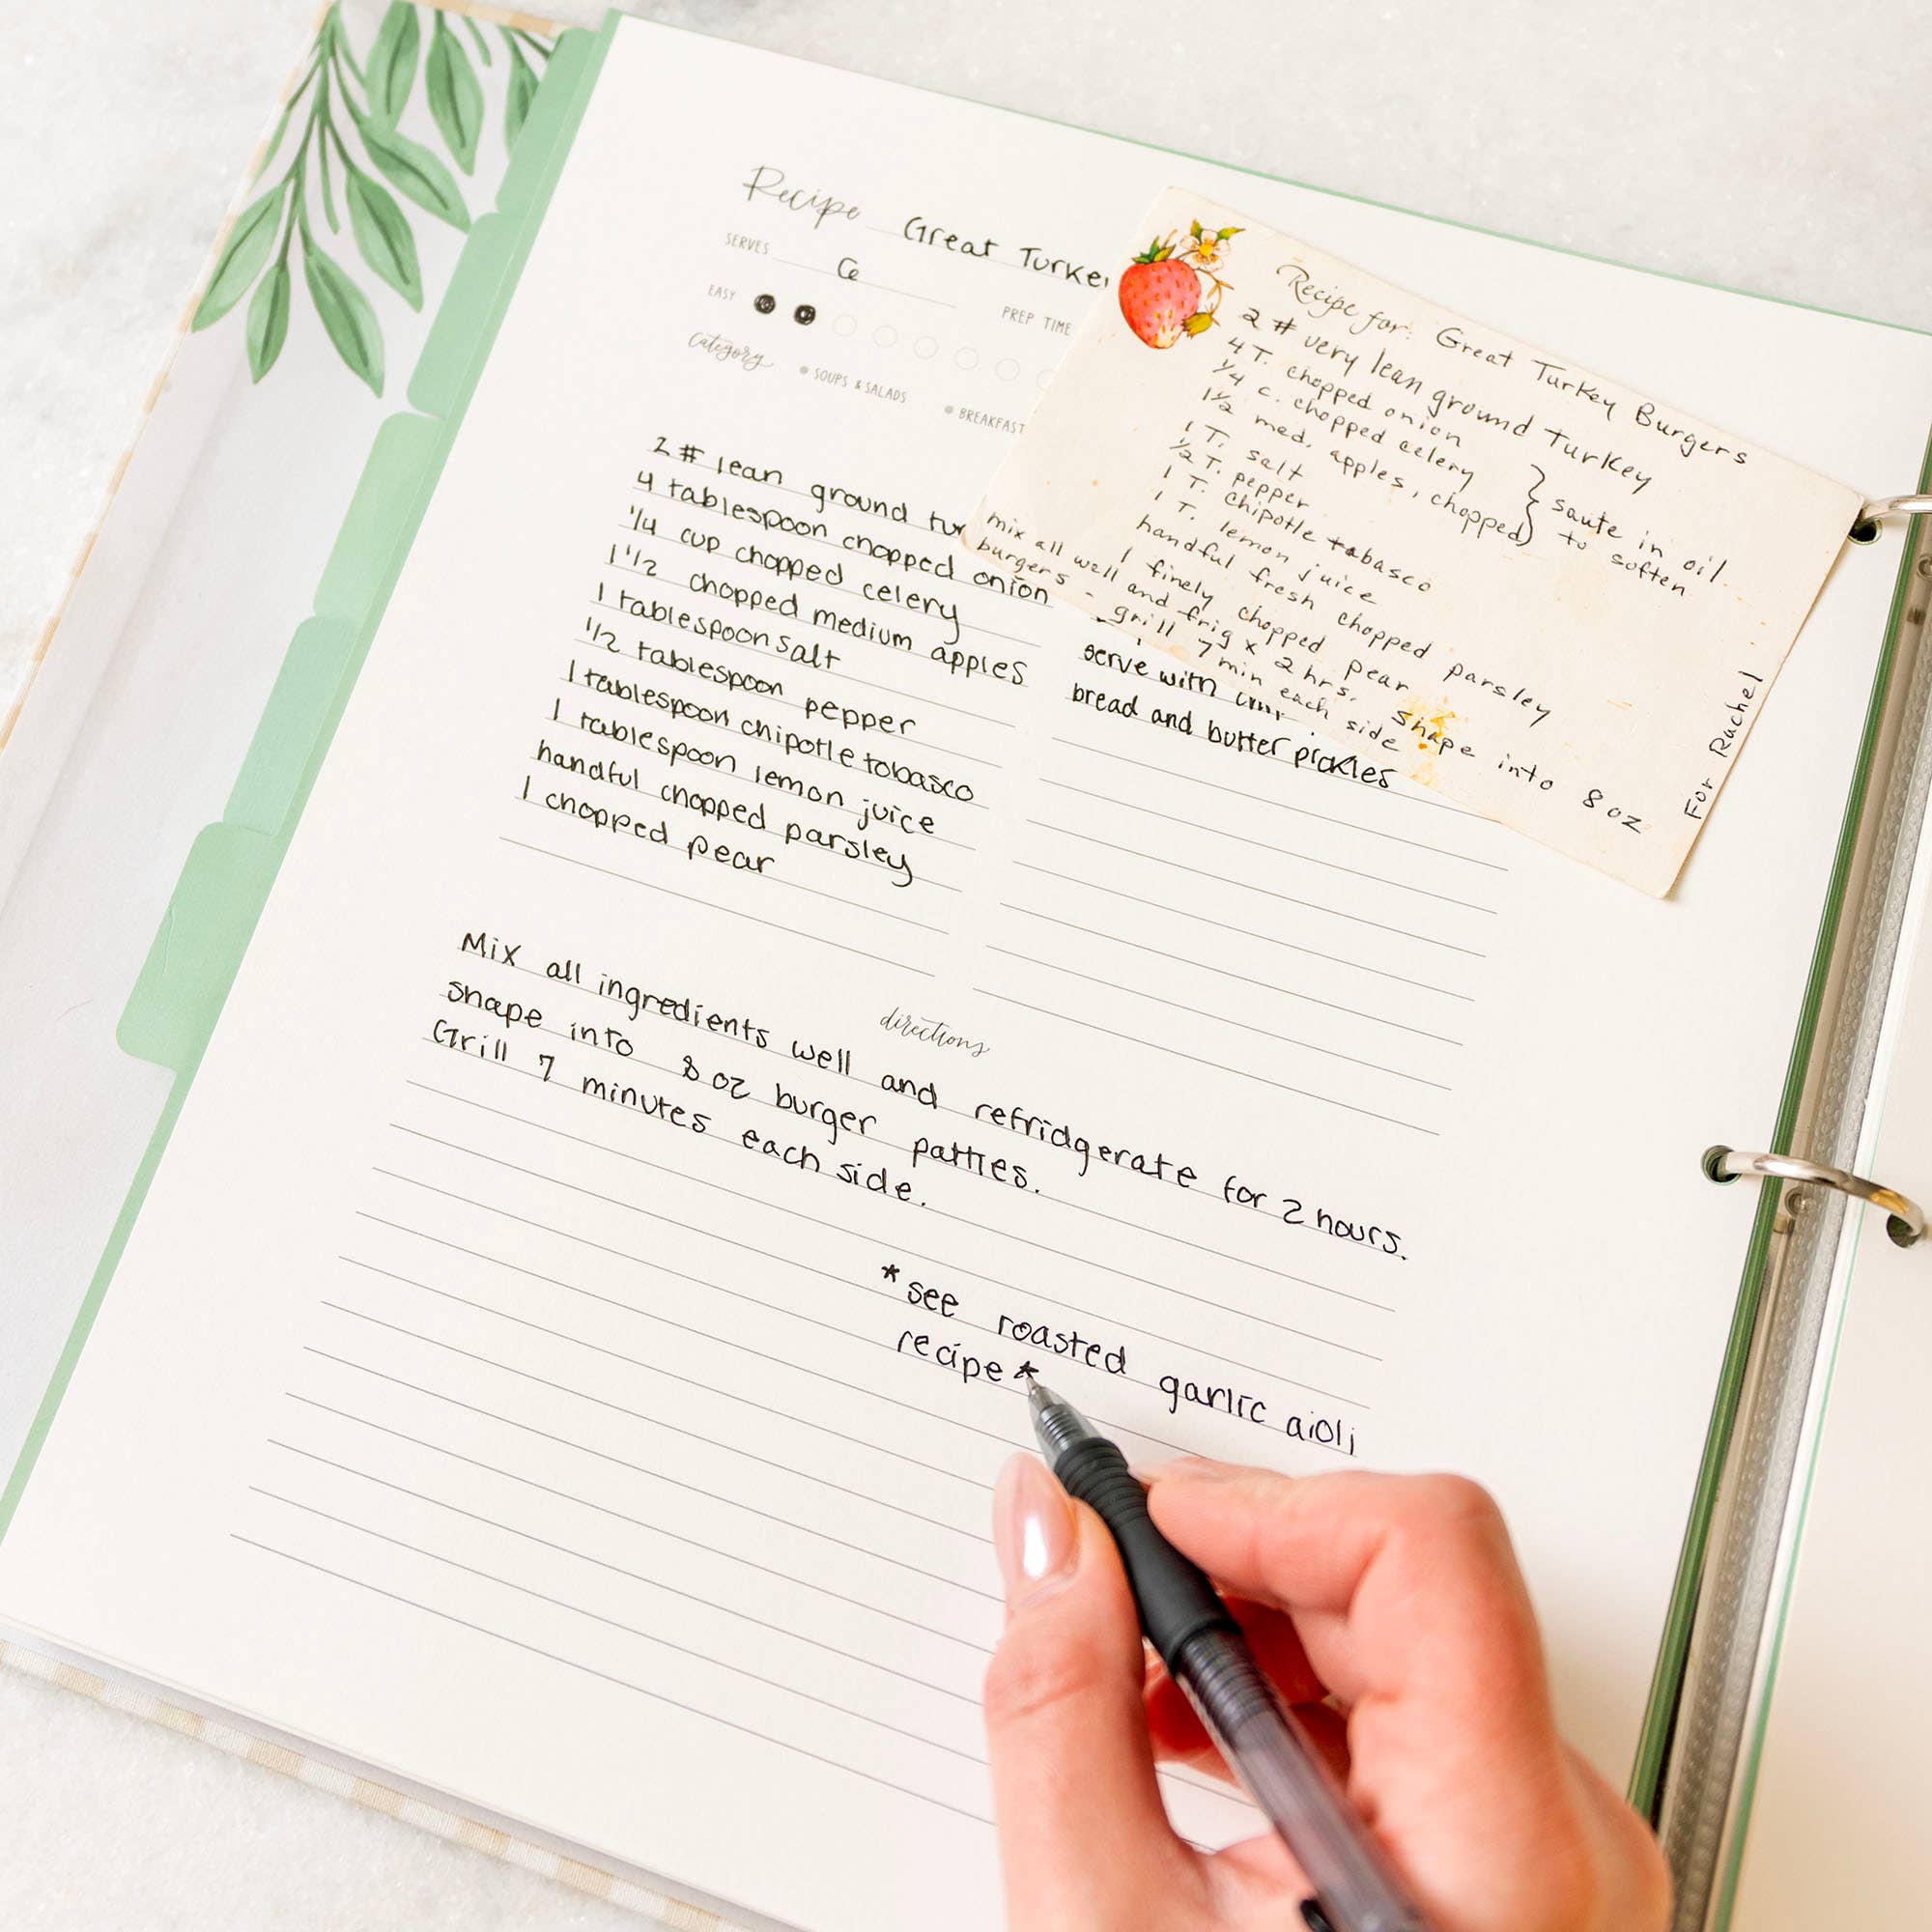 Recipe Great Turkey
SERVES 6
EASY
PREP TIME
category
SOUPS & SALADS
BREAKFAST
2 # lean ground
4 tablespoon chopped onion
1/4 cup chopped celery
1 1/2 chopped medium apples
1 tablespoon salt
1/2 tablespoon pepper
1 tablespoon chipotle tobasco
1 tablespoon lemon juice
handful chopped parsley
1 chopped pear
serve with
bread and butter pickles
directions
Mix all ingredients well and refridgerate for 2 hours.
shape into 8 oz burger patties.
Grill 7 minutes each side.
*see roasted garlic aioli
recipe*
Recipe for: Great Turkey Burgers
2 # very lean ground turkey
4 T. chopped onion
1/4 c. chopped celery
1 1/2 med. apples, chopped
} saute in oil
to soften
1 T. salt
1/2 T. pepper
1 T. chipotle tabasco
1 T. lemon juice
handful fresh chopped parsley
1 finely chopped pear
mix all well and frig x 2 hrs. shape into 8 oz
burgers - grill 7 min each side
For Rachel